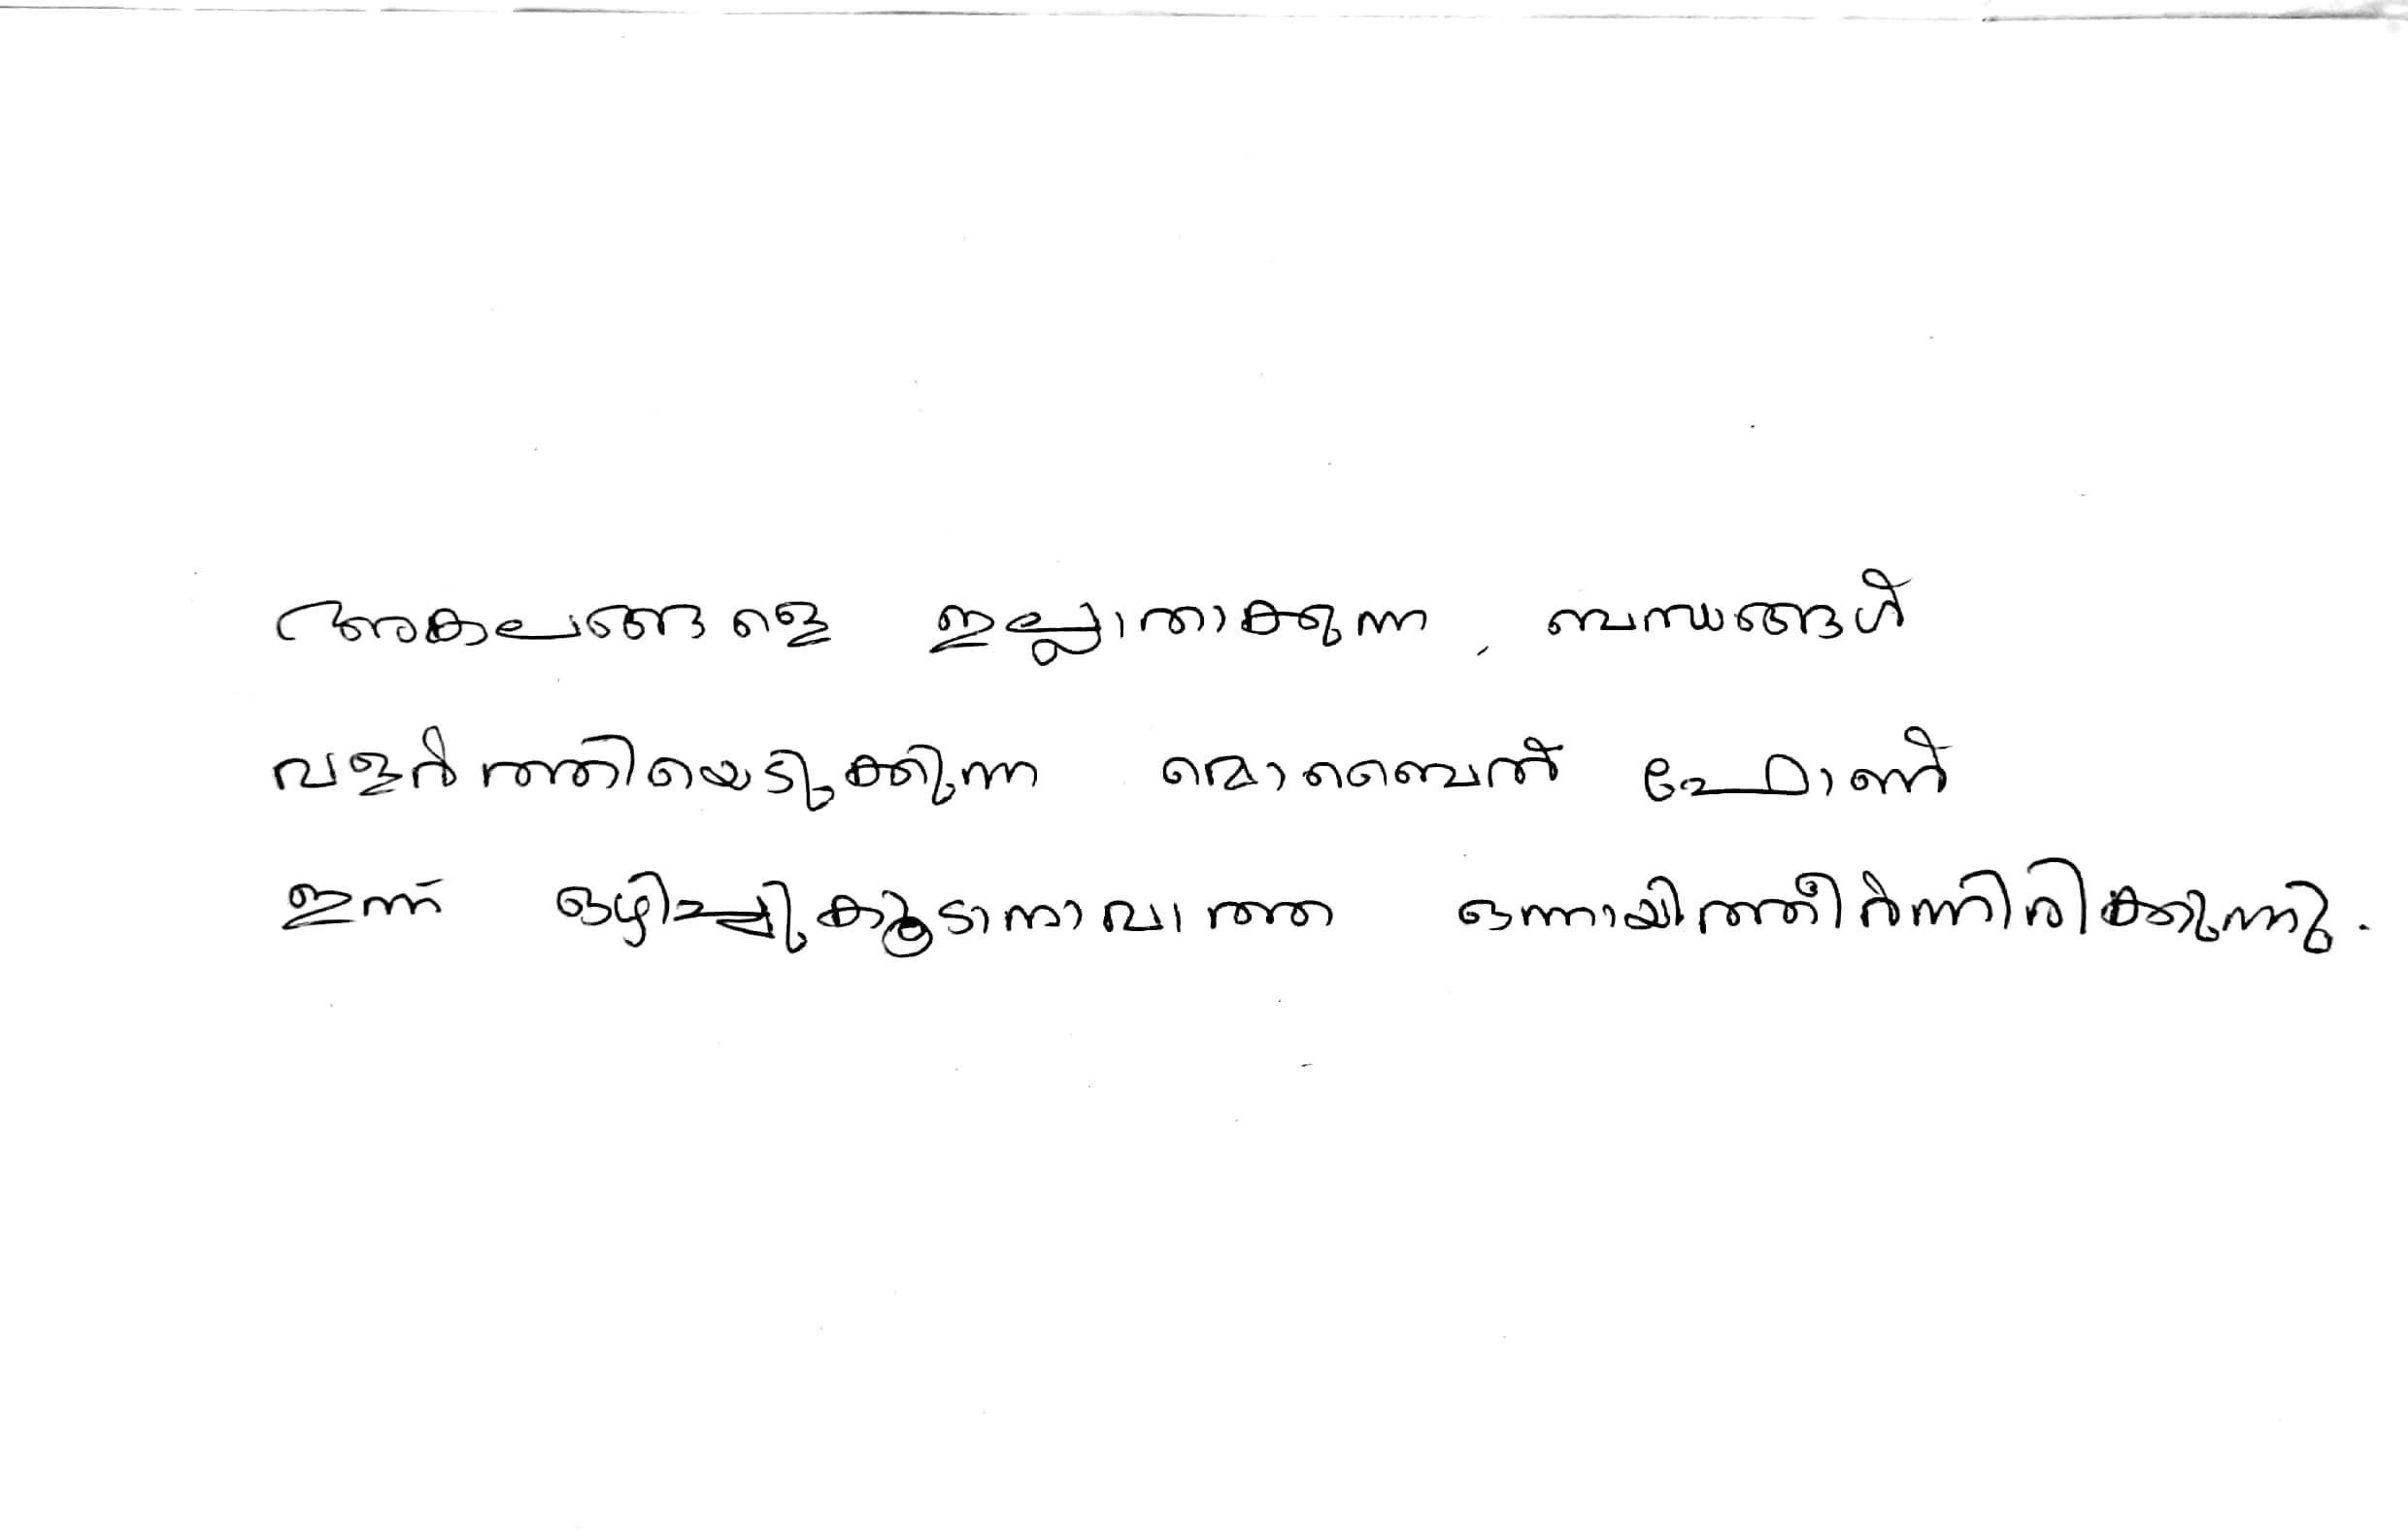 അകലങ്ങളെ ഇല്ലാതാക്കുന്ന, ബന്ധങ്ങൾ
വളർത്തിയെടുക്കുന്ന മൊബൈൽ ഫോൺ
ഇന്ന് ഒഴിച്ചുകൂടാനാവാത്ത ഒന്നായിത്തീർന്നിരിക്കുന്നു.